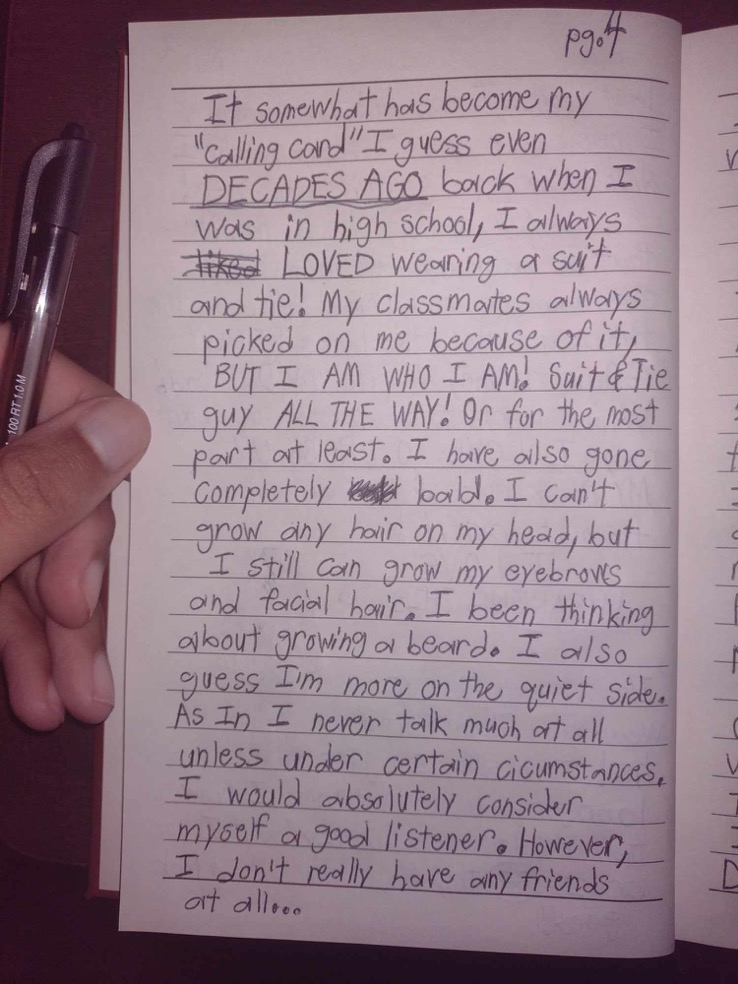 pg.4
It somewhat has become my
"calling card" I guess even
DECADES AGO back when I
was in high school, I always
liked LOVED wearing a suit
and tie! My classmates always
picked on me because of it,
BUT I AM WHO I AM! Suit & Tie
guy ALL THE WAY! Or for the most
part at least. I have also gone
completely bald. I can't
grow any hair on my head, but
I still can grow my eyebrows
and facial hair. I been thinking
about growing a beard. I also
guess I'm more on the quiet side.
As In I never talk much at all
unless under certain cicumstances.
I would absolutely consider
myself a good listener. However,
I don't really have any friends
at all...
100 RT 1.0 M